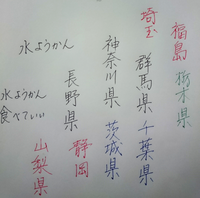 福島
栃木県
埼玉
群馬県
千葉県
神奈川県
茨城県
長野県
静岡
山梨県
水ようかん
水ようかん
食べていい